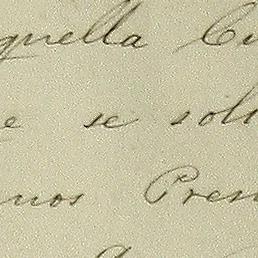 quella Ci
e se solu
nos Pres